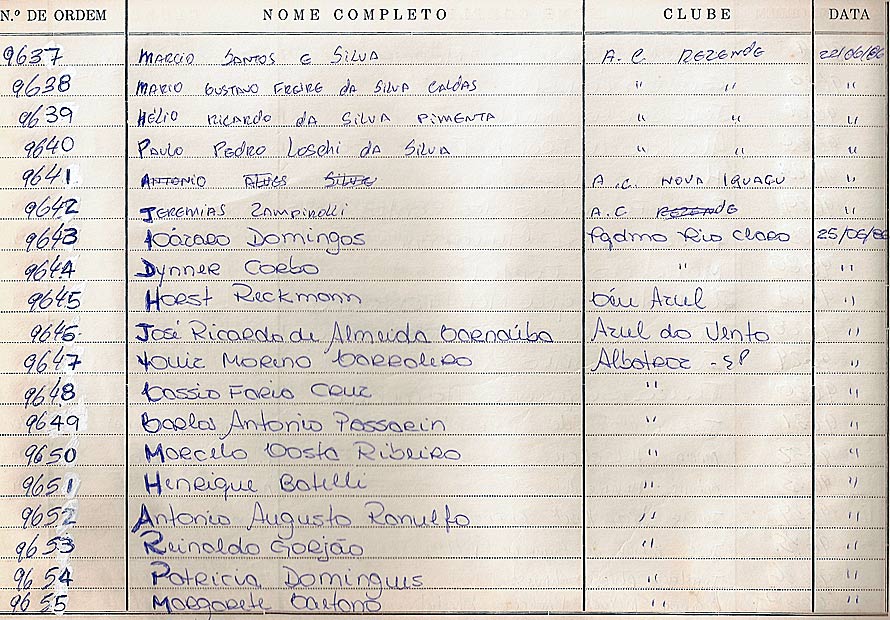 N.º DE ORDEM NOME COMPLETO CLUBE DATA
9637 MARCIO SANTOS E SILVA A. C. REZENDE 22/06/86
9638 MARIO GUSTAVO FREIRE DA SILVA CALDAS " " "
9639 HÉLIO RICARDO DA SILVA PIMENTA " " "
9640 PAULO PEDRO LOSCHI DA SILVA " " "
9641 ANTONIO ALVES SILVA A.C. NOVA IGUAÇU "
9642 JEREMIAS ZAMPIROLLI A.C REZENDE "
9643 Lázaro Domingos Rio Claro 25/06/86
9644 Dynner Corbo " "
9645 Horst Reckmann Céu Azul "
9646 José Ricardo de Almeida Carnaúba Azul do Vento "
9647 Louiz Moreno Albatroz - SP "
9648 Cassio Fario Cruz " "
9649 Carlos Antonio Passarin " "
9650 Marcelo Costa Ribeiro " "
9651 Henrique Botelli " "
9652 Antonio Augusto Ranulfo " "
9653 Reinaldo Gorjão " "
9654 Patricia Dominguis " "
9655 Margarete Caetano " "